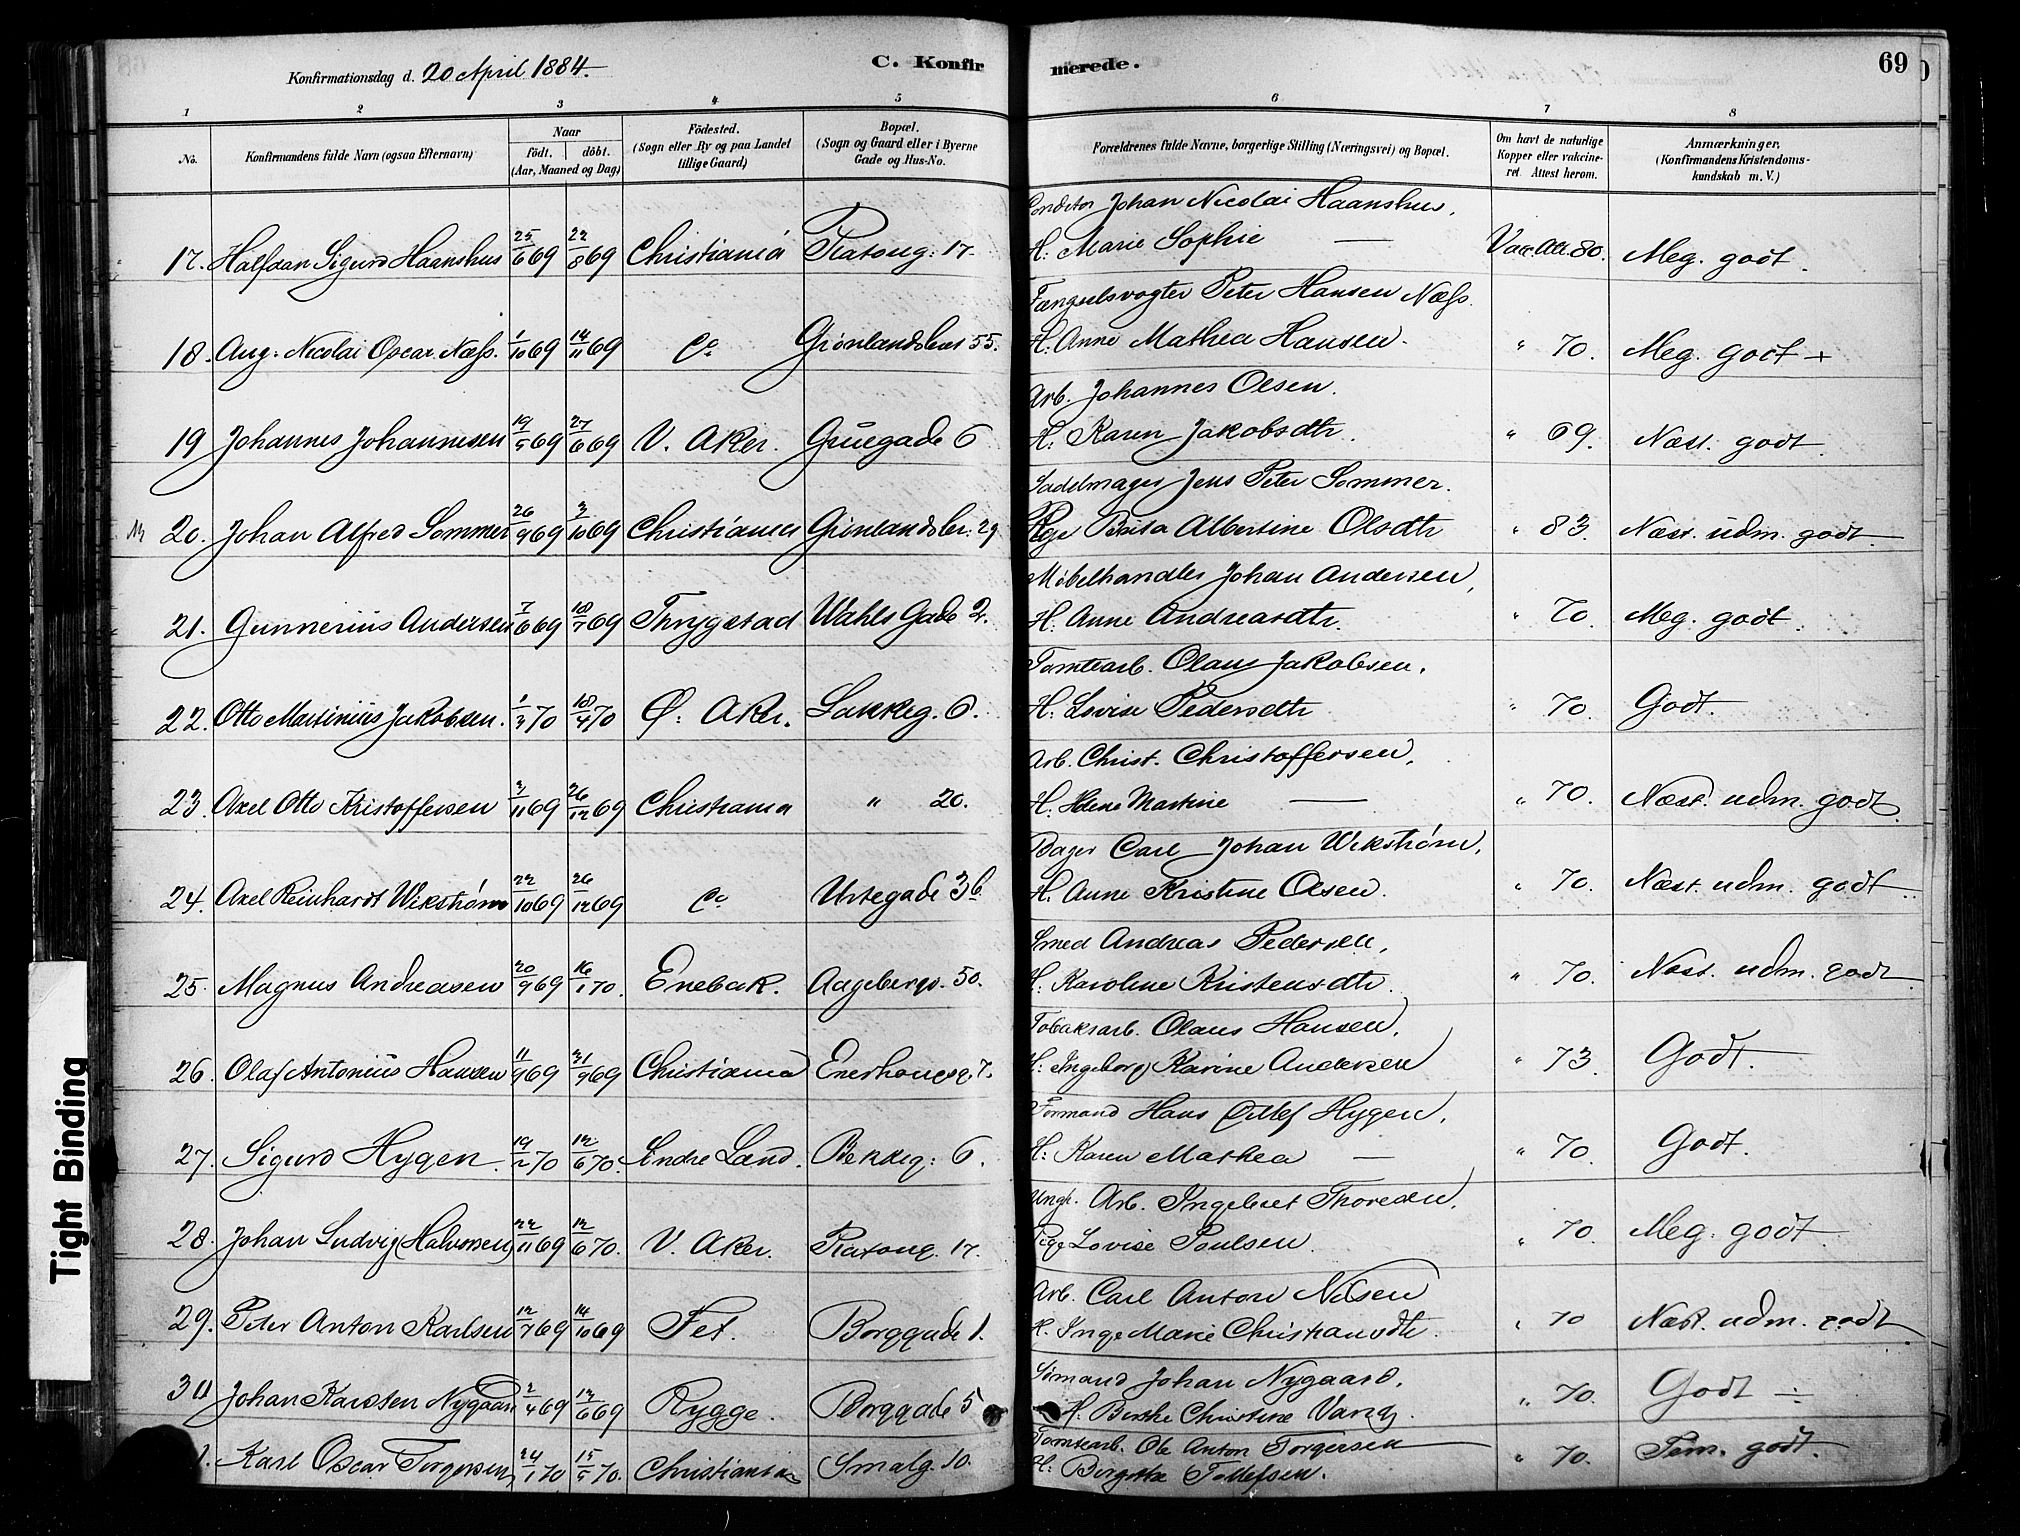 Konfirmationsdag d. 20 April 1884.
C. Konfirmerede.
69
1 2 3 4 5 6 7 8
No.
Konfirmandens fulde Navn (ogsaa Efternavn)
Naar
født. døbt.
(Aar, Maaned og Dag)
Födested.
(Sogn eller By og paa Landet
tillige Gaard)
Bopæl.
(Sogn og Gaard eller i Byerne
Gade og Hus-No.
Forældrenes fulde Navne, borgerlige Stilling (Næringsvei) og Bopæl.
Om havt de naturlige
Kopper eller vaccine-
ret. Attest herom.
Anmærkninger,
(Konfirmandens Kristendoms-
kundskab m. V.)
Conditor Johan Nicolai Haanshus,
17. Halfdan Sigurd Haanshus 25/6 69 22/8 69 Christiania Platoug: 17. H: Marie Sophie — Vacc. Att. 80. Meg. godt.
Fængselsvogter Peter Hansen Næss.
18. Aug. Nicolai Oscar Næss. 1/10 69 14/11 69 Co Grønlandsleret 55. H. Anne Mathea Hansen. " 70. Meg. godt +
Arb. Johannes Olsen.
19 Johannes Johannesen 19/5 69 27/6 69 V. Aker. Gruegade 6 H. Karen Jakobsdtr. " 69. Næst. godt.
Sadelmager Jens Peter Sommer.
20. Johan Alfred Sommer 26/9 69 3/10 69 Christiania Grønlandsler. 29 Pige Albertine Olsdtr " 83. Næst. udm. godt.
Møbelhandler Johan Andersen,
21. Gunnerius Andersen 7/6 69 18/7 69 Thrygstad Wahls Gade 2. H. Anne Andreasdtr. " 70. Meg. godt.
Tomtearb. Olaus Jakobsen.
22. Otto Martinius Jakobsen. 1/3 70 18/4 70 Ø. Aker. Lakkeg. 6. H. Lovise Pedersdtr " 70. Godt.
Arb. Christ. Christoffersen,
23. Axel Otto Kristoffersen 3/11 69 26/12 69 Christiania " 20. H. Helene Martine — " 70. Næst. udm. godt.
Bager Carl Johan Wikstrøm,
24. Axel Reinhardt Wikstrøm 22/10 69 26/12 69 Co Urtegade 3b H. Anne Kristine Olsen. " 70. Næst. udm. godt.
Smed Andreas Pedersen,
25. Magnus Andreasen 20/9 69 16/1 70. Enebak. Aagebergv. 50. H. Karoline Kristensdtr. " 70. Næst. udm. godt.
Tobaksarb. Olaus Hansen,
26. Olaf Antonius Hansen 11/9 69 31/9 69 Christiania Enerhougsg 7. H: Ingeborg Karine Andersen " 73. Godt.
Formand Hans Detlef Hygen,
27. Sigurd Hygen. 19/2 70 12/6 70. Søndre Land. Bakkeg: 6. H: Karen Mathea — " 70. Godt.
Ungk. Arb. Ingebret Thoresen,
28. Johan Ludvig (Halvorsen) 22/11 69 12/6 70. V. Aker. Platoug. 17. Pige Lovise Poulsen. " 70. Meg. godt.
Arb. Carl Anton Nilsen
29. Peter Anton Karlsen 12/7 69 14/10 69 Fet. Borggade 1. H. Inge Marie Christiansdtr. " 70 Næst. udm. godt
Sømand Johan Nygaard,
30 Johan Karsten Nygaard 2/4 69 13/6 69 Rygge. Borggade 5 H. Christine Vang. " 70. Godt ÷
Tomtearb. Ole Anton Torgersen
1. Karl Oscar Torgersen 24/1 70 15/5 70. Christiania Smalg. 10. H: Birgithe Tollefsen. " 70. Tem. godt.
Tight Binding